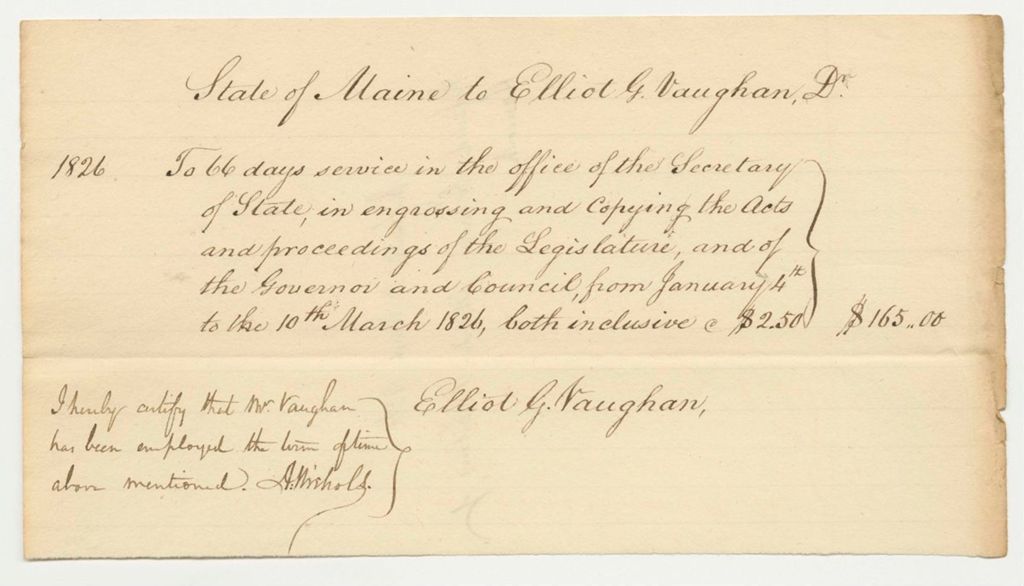 State of Maine to Elliot G. Vaughan, Dr.
1826 To 66 days service in the office of the Secretary
of State, in engrossing and Copying the Acts
and proceedings of the Legislature, and of
the Governor and Council, from January 4th
to the 10th March 1826, both inclusive @ $2.50 $165..00
Elliot G. Vaughan,
I hereby certify that Mr. Vaughan
has been employed the term of time
above mentioned. A. Nichols.